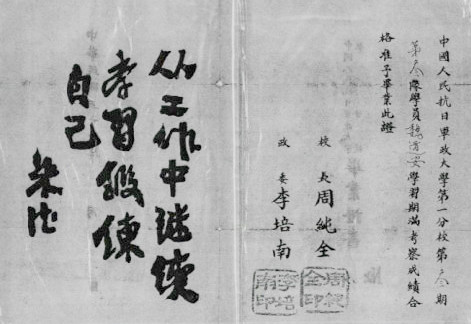 中國人民抗日軍政大學第一分校第叁期
第叁隊學員魏安學習期滿考察成績合
格准予畢業此證
校長周純全
政委李培南
周純全印
李培南印
从工作中繼續
學習鍛鍊
自己
朱德